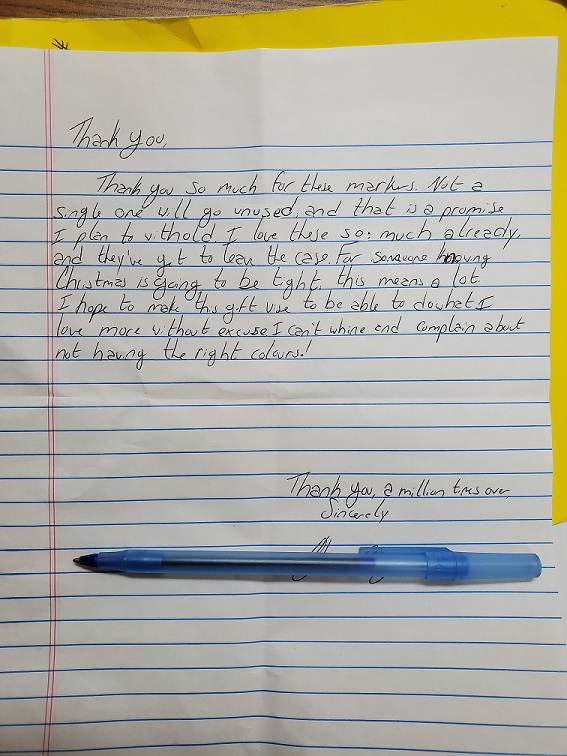 Thank you,
Thank you so much for these markers. Not a
single one will go unused, and that is a promise
I plan to withold. I love these so; much already,
and they've yet to leave the case. For someone knowing
Christmas is going to be tight, this means a lot.
I hope to make this gift use to be able to do what I
love more without excuse. I can't whine and complain about
not having the right colours!
Thank you, a million times over,
Sincerely